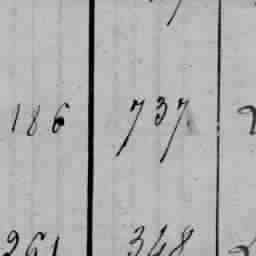 186 737
261 348